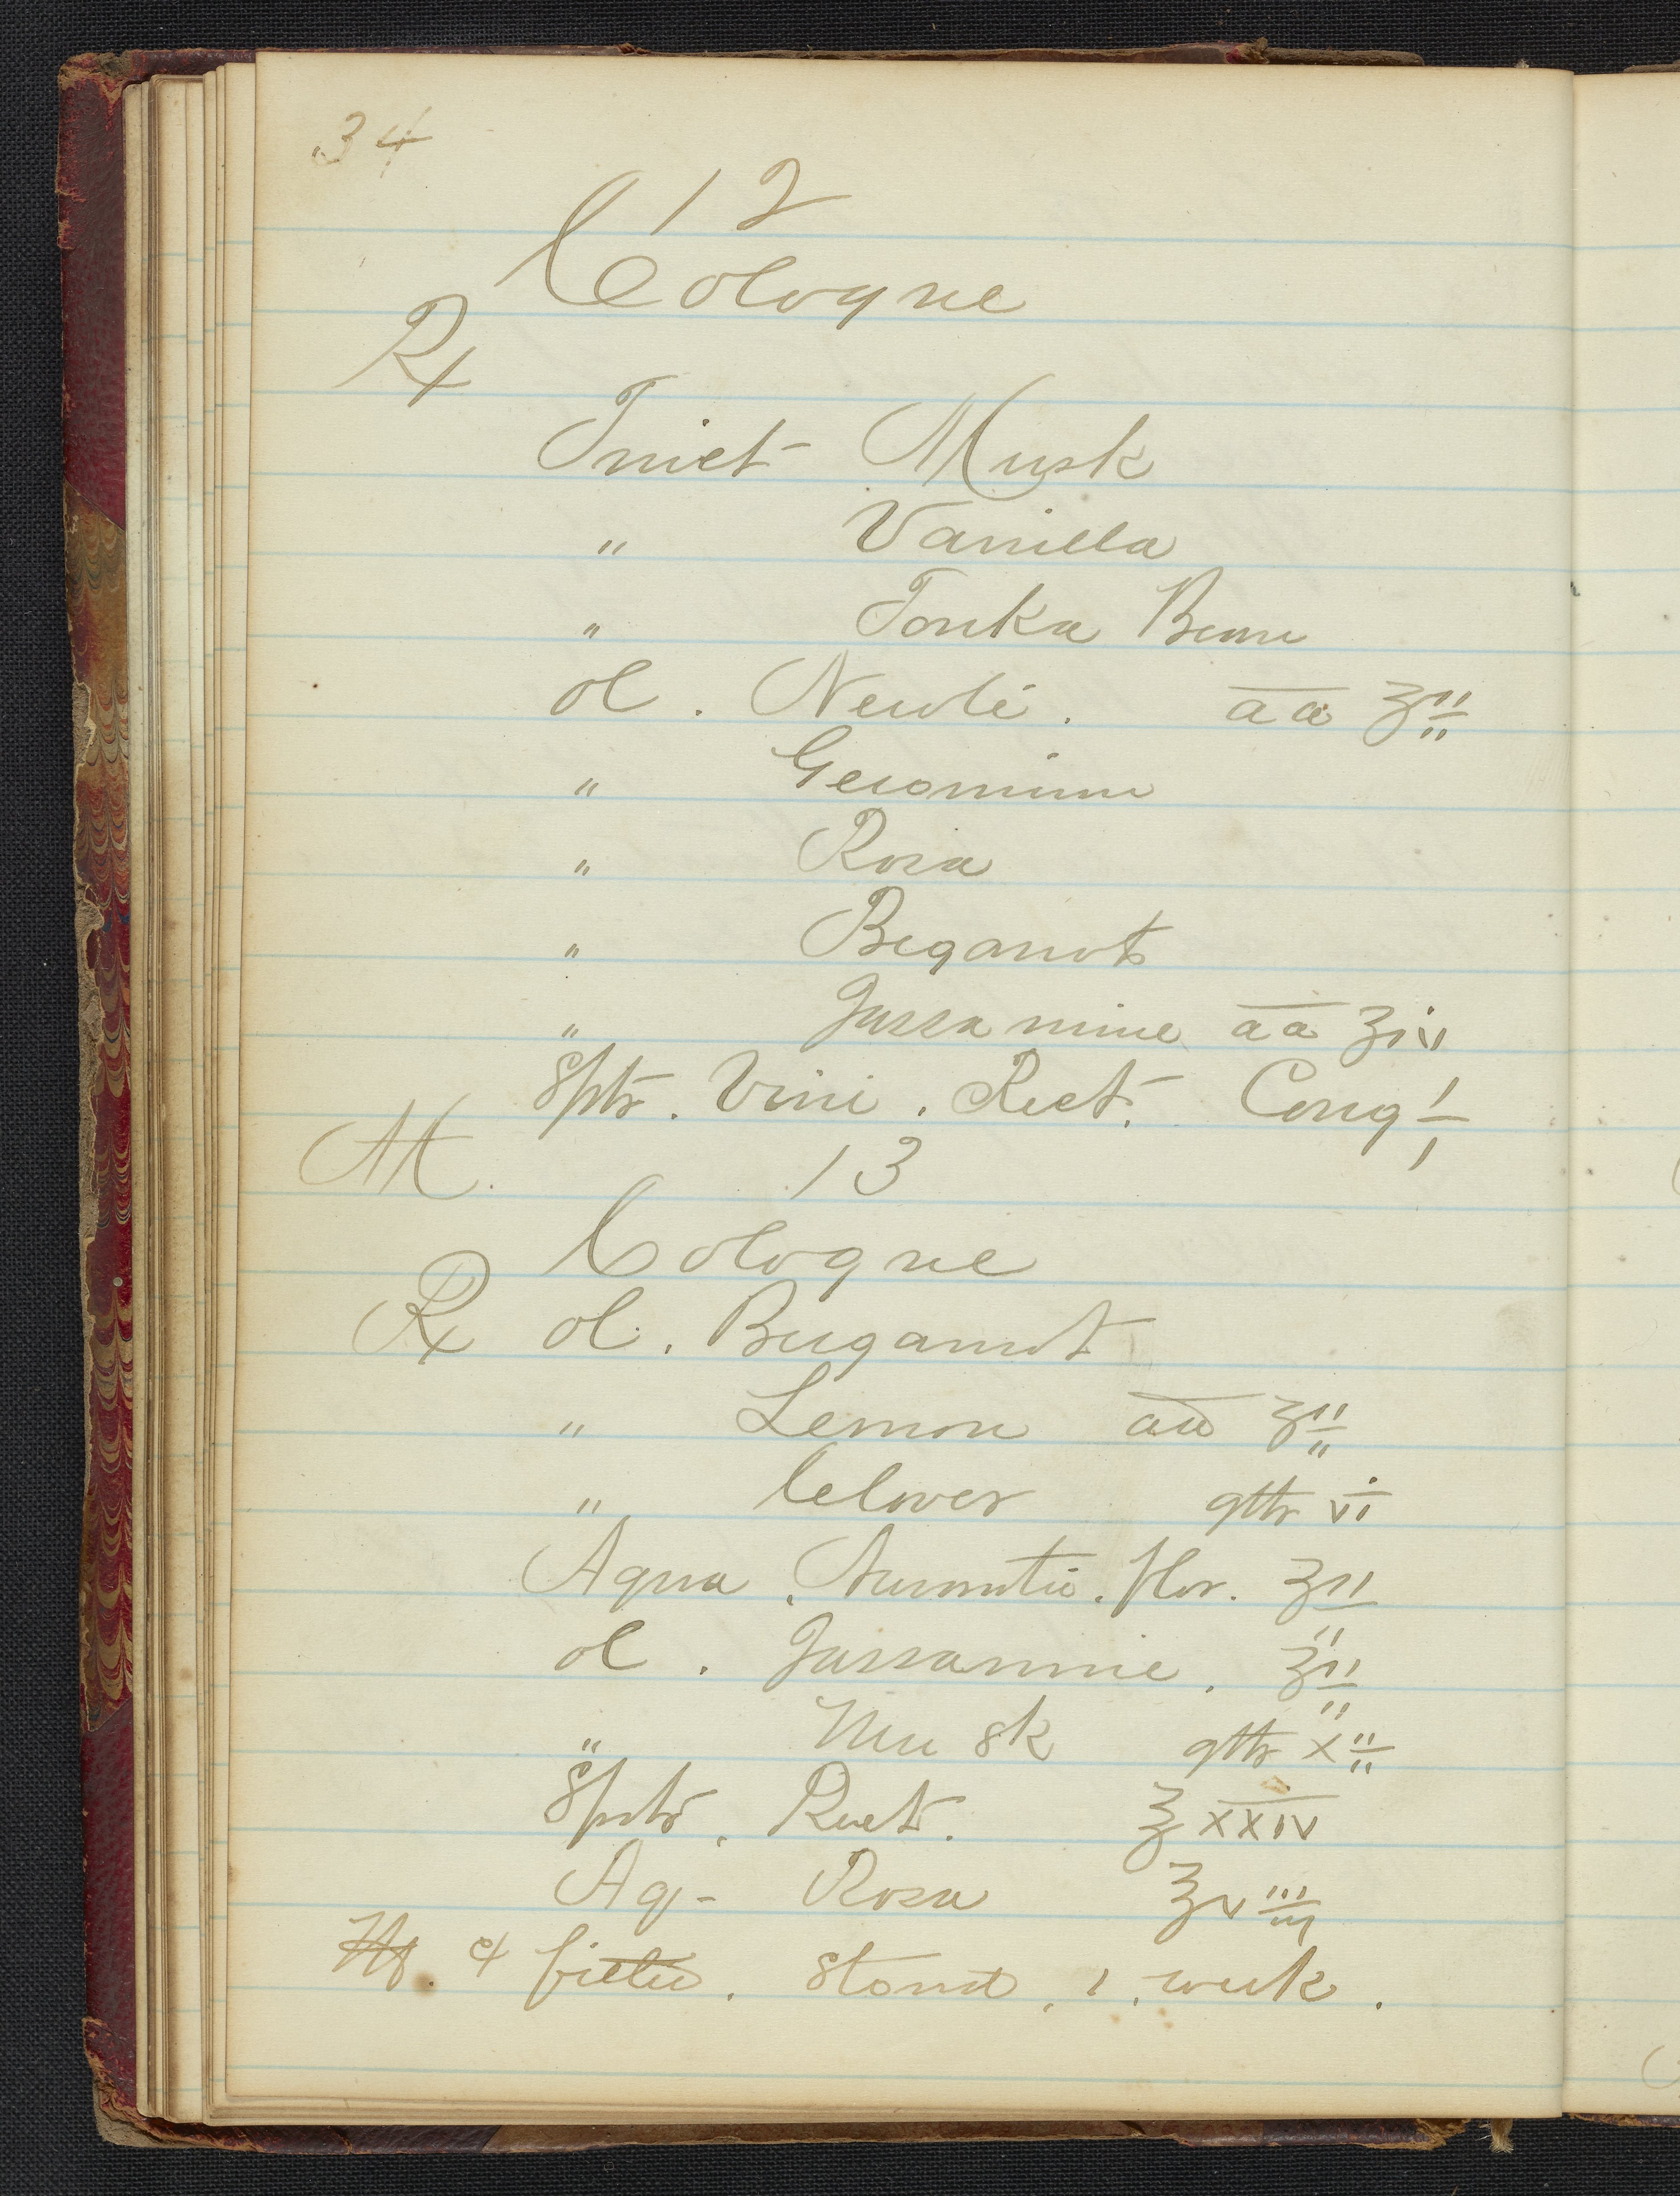 34
12
Cologne
Rx
Tinct Musk
" Vanilla
" Tonka Bean
Ol. Neroli. aa ʒii
" Geranium
" Rosa
" Begamot
" Jassamine aa ʒiv
Spts. Vini. Rect. Cong i
M. 13
Cologne
Rx Ol. Bergamot
" Lemon aa ʒii
" Cloves gtts vi
Aqua. Aurantii. flor. ʒii
Ol. Jassamine. ʒii
" Musk gtts xii
Spts. Rect. ℥xxiv
Aq- Rosa ℥viii
M. & filter. Stand. 1. week.